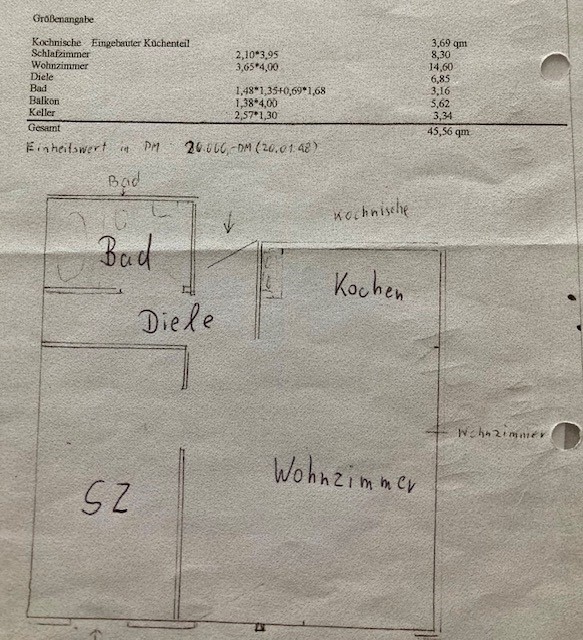 Größenangabe
Kochnische Eingebauter Küchenteil 3,69 qm
Schlafzimmer 2,10*3,95 8,30
Wohnzimmer 3,65*4,00 14,60
Diele 6,85
Bad 1,48*1,35+0,69*1,68 3,16
Balkon 1,38*4,00 5,62
Keller 2,57*1,30 3,34
Gesamt 45,56 qm
Einheitswert in DM 20.000,-DM (20.01.48)
Bad
Kochnische
Bad
Kochen
Diele
Wohnzimmer
Wohnzimmer
SZ